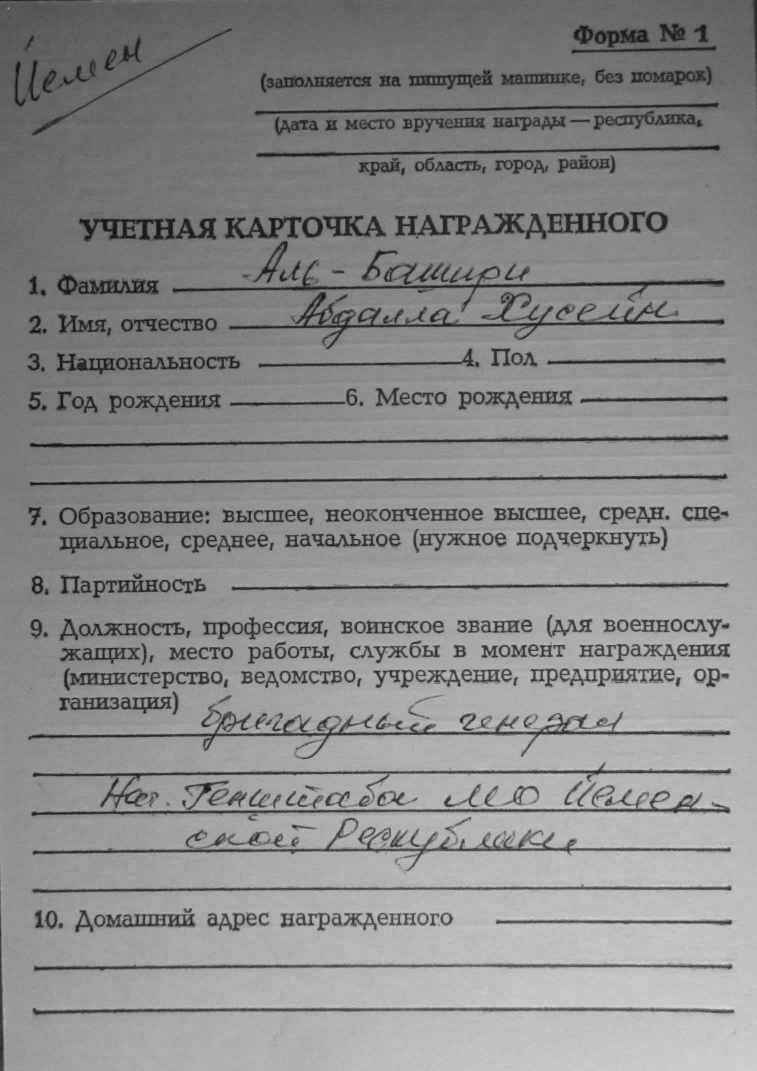 Йемен
Форма № 1
(заполняется на пишущей машинке, без помарок)
(дата и место вручения награды — республика,
край, область, город, район)
УЧЕТНАЯ КАРТОЧКА НАГРАЖДЕННОГО
1. Фамилия Аль-Башири
2. Имя, отчество Абдалла Хусейн
3. Национальность 4. Пол
5. Год рождения 6. Место рождения
7. Образование: высшее, неоконченное высшее, средн. спе-
циальное, среднее, начальное (нужное подчеркнуть)
8. Партийность
9. Должность, профессия, воинское звание (для военнослу-
жащих), место работы, службы в момент награждения
(министерство, ведомство, учреждение, предприятие, ор-
ганизация)
бригадный генерал
Нач. Генштаба МО Йемен-
ской Республики
10. Домашний адрес награжденного